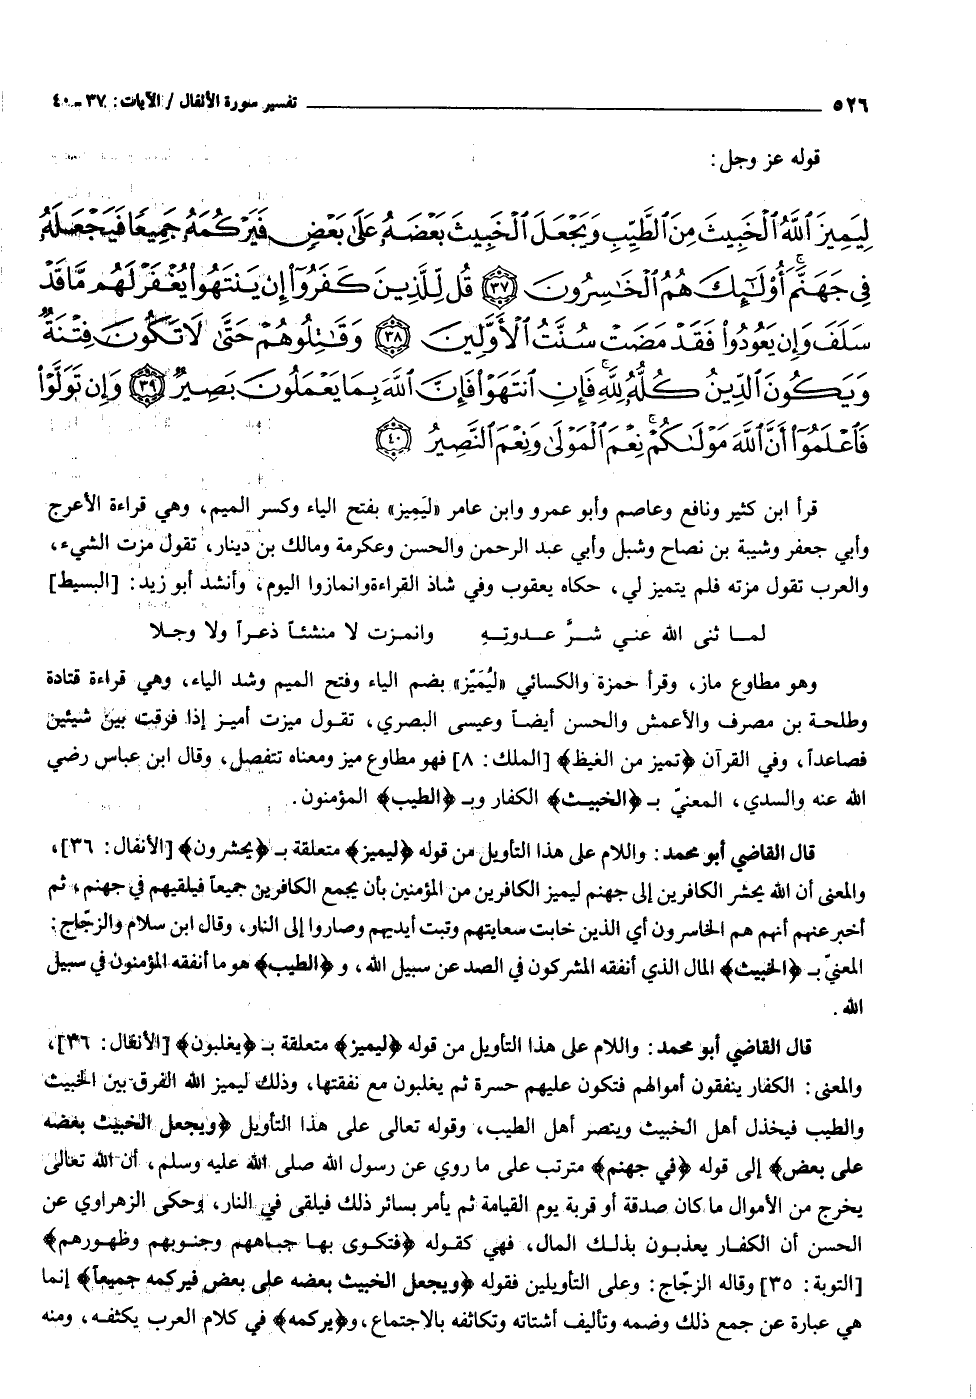 ٥٢٦ تفسير سورة الأنفال / الآيات: ٣٧ - ٤٠
قوله عز وجل:
لِيَمِيزَ ٱللَّهُ ٱلْخَبِيثَ مِنَ ٱلطَّيِّبِ وَيَجْعَلَ ٱلْخَبِيثَ بَعْضَهُۥ عَلَىٰ بَعْضٍ فَيَرْكُمَهُۥ جَمِيعًا فَيَجْعَلَهُۥ
فِى جَهَنَّمَ ۚ أُو۟لَـٰٓئِكَ هُمُ ٱلْخَـٰسِرُونَ ﴿٣٧﴾ قُل لِّلَّذِينَ كَفَرُوٓا۟ إِن يَنتَهُوا۟ يُغْفَرْ لَهُم مَّا قَدْ
سَلَفَ وَإِن يَعُودُوا۟ فَقَدْ مَضَتْ سُنَّتُ ٱلْأَوَّلِينَ ﴿٣٨﴾ وَقَـٰتِلُوهُمْ حَتَّىٰ لَا تَكُونَ فِتْنَةٌ
وَيَكُونَ ٱلدِّينُ كُلُّهُۥ لِلَّهِ ۚ فَإِنِ ٱنتَهَوْا۟ فَإِنَّ ٱللَّهَ بِمَا يَعْمَلُونَ بَصِيرٌ ﴿٣٩﴾ وَإِن تَوَلَّوْا۟
فَٱعْلَمُوٓا۟ أَنَّ ٱللَّهَ مَوْلَىٰكُمْ ۚ نِعْمَ ٱلْمَوْلَىٰ وَنِعْمَ ٱلنَّصِيرُ ﴿٤٠﴾
قرأ ابن كثير ونافع وعاصم وأبو عمرو وابن عامر «ليَمِيز» بفتح الياء وكسر الميم، وهي قراءة الأعرج
وأبي جعفر وشيبة بن نصاح وشبل وأبي عبد الرحمن والحسن وعكرمة ومالك بن دينار، تقول مزت الشيء،
والعرب تقول مزته فلم يتميز لي، حكاه يعقوب وفي شاذ القراءة وانمازوا اليوم، وأنشد أبو زيد: [البسيط]
لمـا ثنى الله عنـي شـرَّ عـدوتـهِ وانمـزت لا منشئـاً ذعـراً ولا وجـلا
وهو مطاوع ماز، وقرأ حمزة والكسائي «ليُمَيّز» بضم الياء وفتح الميم وشد الياء، وهي قراءة قتادة
وطلحـة بن مصرف والأعمش والحسن أيضـاً وعيسى البصري، تقـول ميزت أميـز إذا فرقت بيْن شيئين
فصاعداً، وفي القرآن ﴿تميز من الغيظ﴾ [الملك: ٨] فهو مطاوع ميز ومعناه تتفصل، وقال ابن عباس رضي
الله عنه والسدي، المعنيّ بـ ﴿الخبيـث﴾ الكفار وبـ ﴿الطيب﴾ المؤمنون.
قال القاضي أبو محمد: واللام على هذا التأويل من قوله ﴿ليميز﴾ متعلقة بـ ﴿يحشرون﴾ [الأنفال: ٣٦]،
والمعنى أن الله يحشر الكافرين إلى جهنم ليميز الكافرين من المؤمنين بأن يجمع الكافرين جميعاً فيلقيهم في جهنم، ثم
أخبر عنهم أنهم هم الخاسرون أي الذين خابت سعايتهم وتبت أيديهم وصاروا إلى النار، وقال ابن سلام والزجّاج:
المعنيّ بـ ﴿الخبيث﴾ المال الذي أنفقه المشركون في الصد عن سبيل الله، و ﴿الطيب﴾ هو ما أنفقه المؤمنون في سبيل
الله.
قال القاضي أبو محمد: واللام على هذا التأويل من قوله ﴿ليميز﴾ متعلقة بـ ﴿يغلبون﴾ [الأنفال: ٣٦]،
والمعنى: الكفار ينفقون أموالهم فتكون عليهم حسرة ثم يغلبون مع نفقتها، وذلك ليميز الله الفرق بين الخبيث
والطيب فيخذل أهل الخبيث وينصر أهل الطيب، وقوله تعالى على هذا التأويل ﴿ويجعل الخبيث بعضه
على بعض﴾ إلى قوله ﴿في جهنم﴾ مترتب على ما روي عن رسول الله صلى الله عليه وسلم، أن الله تعالى
يخرج من الأموال ما كان صدقة أو قربة يوم القيامة ثم يأمر بسائر ذلك فيلقى في النار، وحكى الزهراوي عن
الحسن أن الكفـار يعذبـون بذلـك المال، فهي كقـوله ﴿فتكـوى بهـا جبـاههم وجنـوبهم وظهـورهم﴾
[التوبة: ٣٥] وقاله الزجّاج: وعلى التأويلين فقوله ﴿ويجعل الخبيث بعضه على بعض فيركمه جميعاً﴾ إنما
هي عبارة عن جمع ذلك وضمه وتأليف أشتاته وتكاثفه بالاجتماع، و﴿يركمه﴾ في كلام العرب يكثفه، ومنه